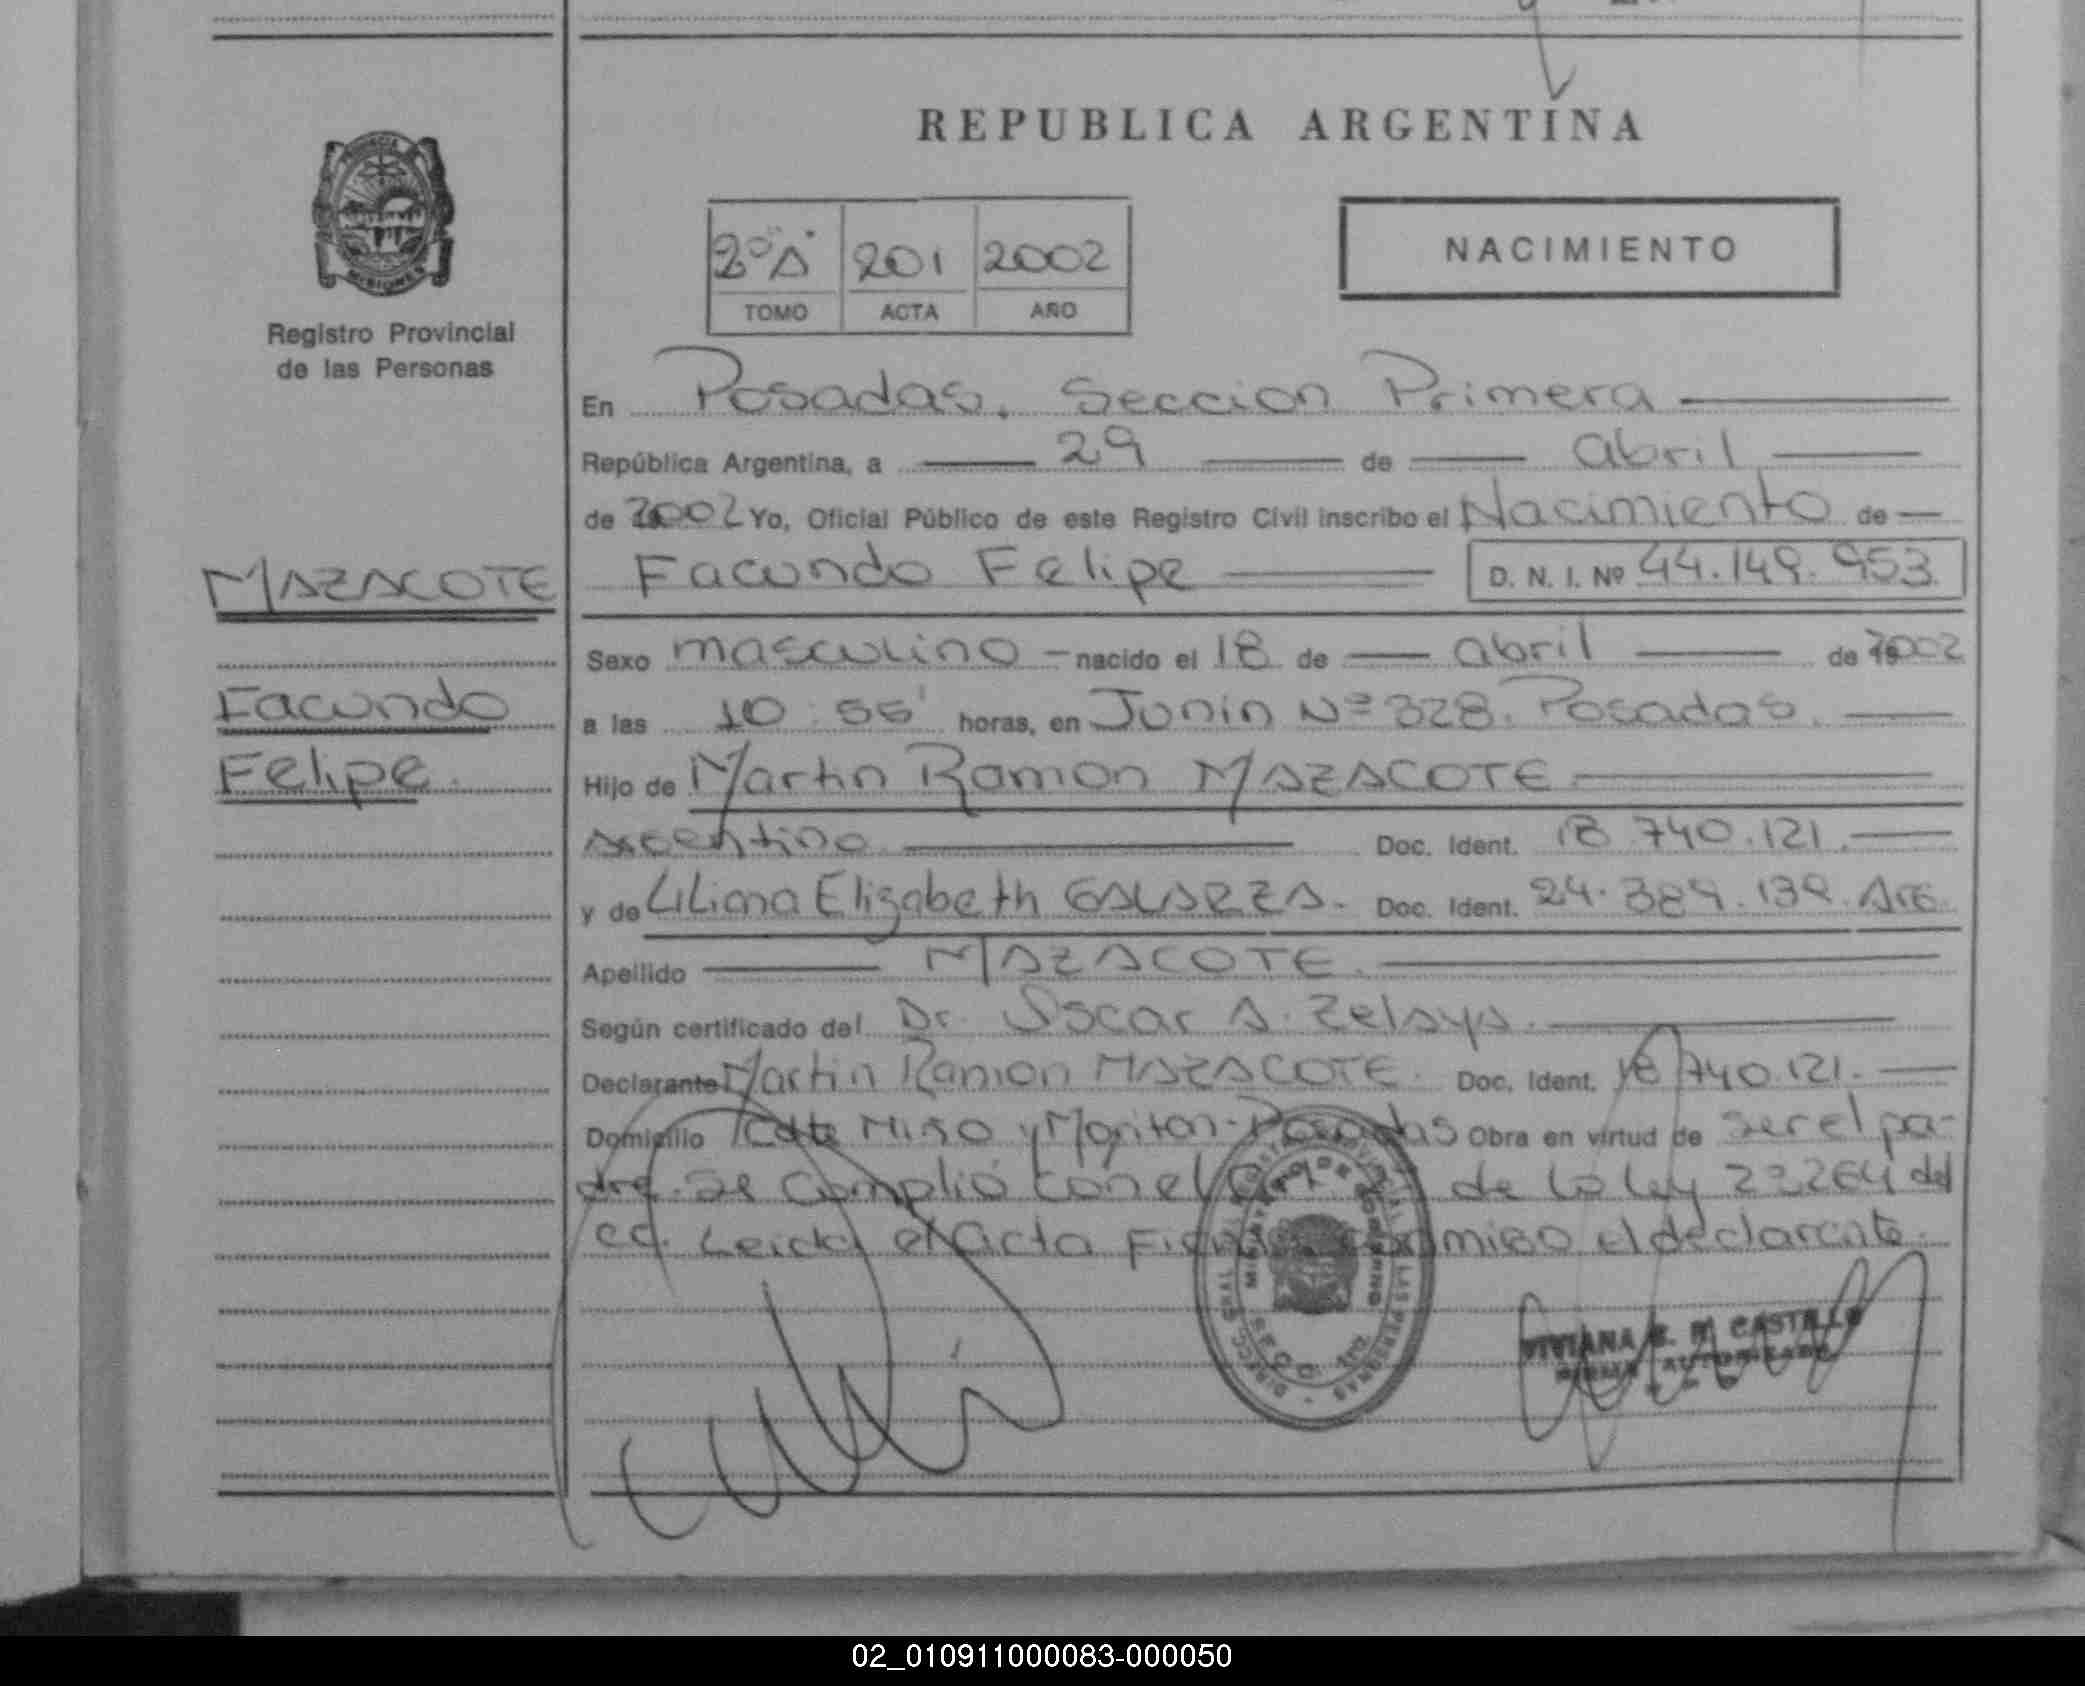 REPUBLICA ARGENTINA
PROVINCIA DE
MISIONES
Registro Provincial
de las Personas
2º "A" 201 2002
TOMO ACTA AÑO
NACIMIENTO
En Posadas, Seccion Primera
República Argentina, a 29 de abril
de 2002 Yo, Oficial Público de este Registro Civil inscribo el Nacimiento de
MAZACOTE
Facundo Felipe D. N. I. Nº 44.149.953
Sexo masculino nacido el 18 de abril de 2002
Facundo
a las 10:55' horas, en Junin Nº 328. Posadas.
Felipe.
Hijo de Martin Ramon MAZACOTE
Argentino Doc. Ident. 18.740.121.
y de Liliana Elizabeth GALARZA. Doc. Ident. 24.389.139. Arg.
Apellido MAZACOTE.
Según certificado del Dr. Oscar A. Zelaya.
Declarante Martin Ramon MAZACOTE. Doc. Ident. 18.740.121.
Domicilio Miño y Posadas Obra en virtud de ser el pa-
dre. Se cumplió con el de la ley 23264 del
cc. Leida el acta conmigo el declarante.
MINISTERIO DE GOBIERNO
VIVIANA E. M CASTILLO
FIRMA AUTORIZADA
02_010911000083-000050